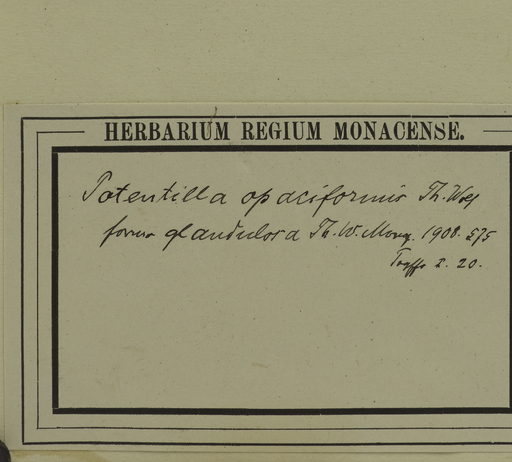 HERBARIUM REGIUM MONACENSE.
Potentilla opaciformis Th. Wolf
forma glandulosa Th. W. Monog. 1908. 575
I. 20.